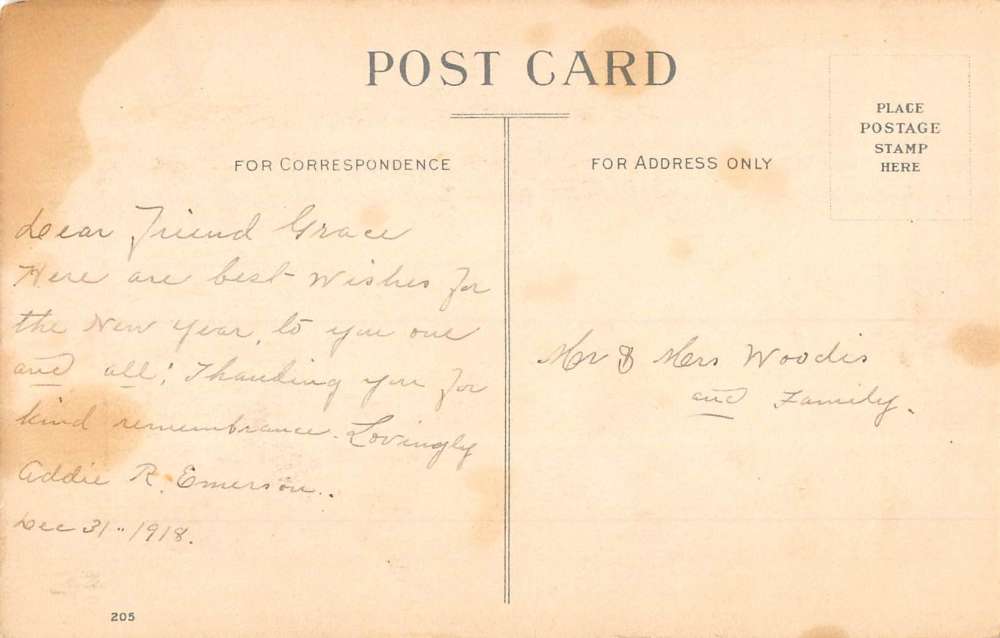 POST CARD
FOR CORRESPONDENCE
FOR ADDRESS ONLY
PLACE
POSTAGE
STAMP
HERE
Dear Friend Grace
Here are best wishes for
the New Year, to you one
and all; Thanking you for
kind remembrance. Lovingly
Addie R. Emerson..
Dec 31.. 1918.
Mr & Mrs Woodis
and Family.
205